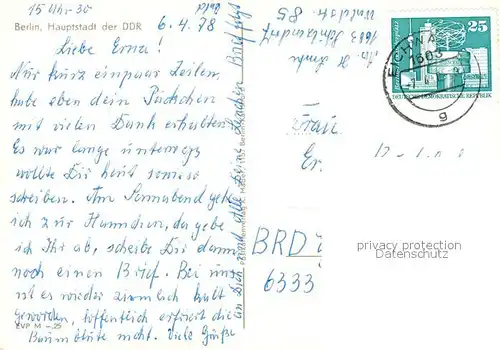 15 Uhr 30
Berlin, Hauptstadt der DDR
6.4.78
Liebe Erna!
Nur kurz ein paar Zeilen,
habe eben dein Päckchen
mit vielen Dank erhalten
Es war lange unterwegs
wollte Dir heut sowieso
schreiben. Am Sonnabend gehe
ich zur Hannchen, da gebe
ich Ihr ab, schreibe Dir dann
noch einen Brief. Bei uns
ist es wieder ziemlich kalt
geworden, hoffentlich erfriert die
Baumblüte nicht. Viele Grüße
an Dich und alle Deine
EVP M –,25
Waldstr. 85
25
DEUTSCHE DEMOKRATISCHE REPUBLIK
EICHWA
1603
g
Frau
Er.
BRD
6333
privacy protection
Datenschutz